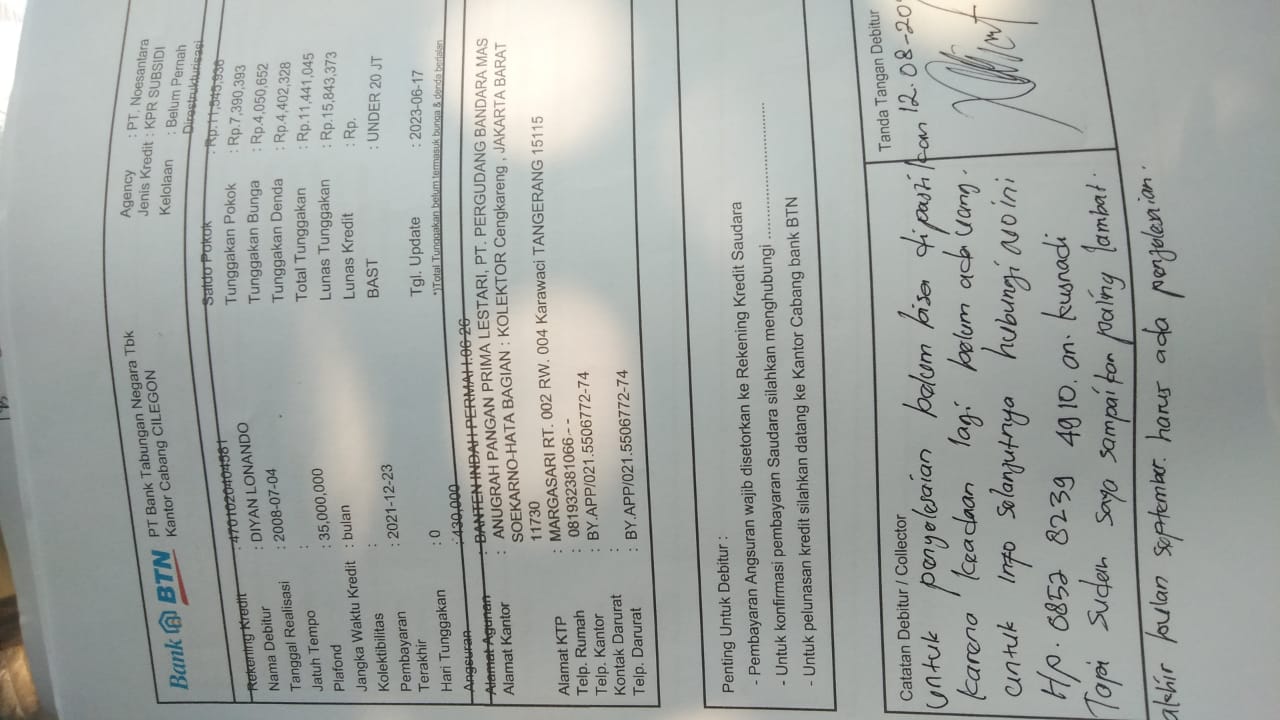 Bank BTN
PT Bank Tabungan Negara Tbk
Kantor Cabang CILEGON
Agency : PT. Noesantara
Jenis Kredit : KPR SUBSIDI
Kelolaan : Belum Pernah
Direstrukturisasi
Rekening Kredit : 4701020404581
Nama Debitur : DIYAN LONANDO
Tanggal Realisasi : 2008-07-04
Jatuh Tempo :
Plafond : 35,000,000
Jangka Waktu Kredit : bulan
Kolektibilitas :
Pembayaran : 2021-12-23
Terakhir
Hari Tunggakan : 0
Angsuran : 430,000
Saldo Pokok
Tunggakan Pokok : Rp.7,390,393
Tunggakan Bunga : Rp.4,050,652
Tunggakan Denda : Rp.4,402,328
Total Tunggakan : Rp.11,441,045
Lunas Tunggakan : Rp.15,843,373
Lunas Kredit : Rp.
BAST : UNDER 20 JT
Tgl. Update : 2023-06-17
*)Total Tunggakan belum termasuk bunga & denda berjalan
Alamat Agunan : BANTEN INDAH PERMAI I.06 26
Alamat Kantor : ANUGRAH PANGAN PRIMA LESTARI, PT. PERGUDANG BANDARA MAS
SOEKARNO-HATA BAGIAN : KOLEKTOR Cengkareng , JAKARTA BARAT
11730
Alamat KTP : MARGASARI RT. 002 RW. 004 Karawaci TANGERANG 15115
Telp. Rumah : 081932381066 - -
Telp. Kantor : BY.APP/021.5506772-74
Kontak Darurat :
Telp. Darurat : BY.APP/021.5506772-74
Penting Untuk Debitur :
- Pembayaran Angsuran wajib disetorkan ke Rekening Kredit Saudara
- Untuk konfirmasi pembayaran Saudara silahkan menghubungi ..............................
- Untuk pelunasan kredit silahkan datang ke Kantor Cabang bank BTN
Catatan Debitur / Collector
Untuk penyelesaian belum bisa dipastikan
Karena keadaan lagi belum ada uang.
untuk info selanjutnya hubungi no ini
Hp. 0852 8239 4910. an. kusnadi
Tapi sudah saya sampaikan paling lambat.
akhir bulan september. harus ada penyelesaian.
Tanda Tangan Debitur
12.08-20